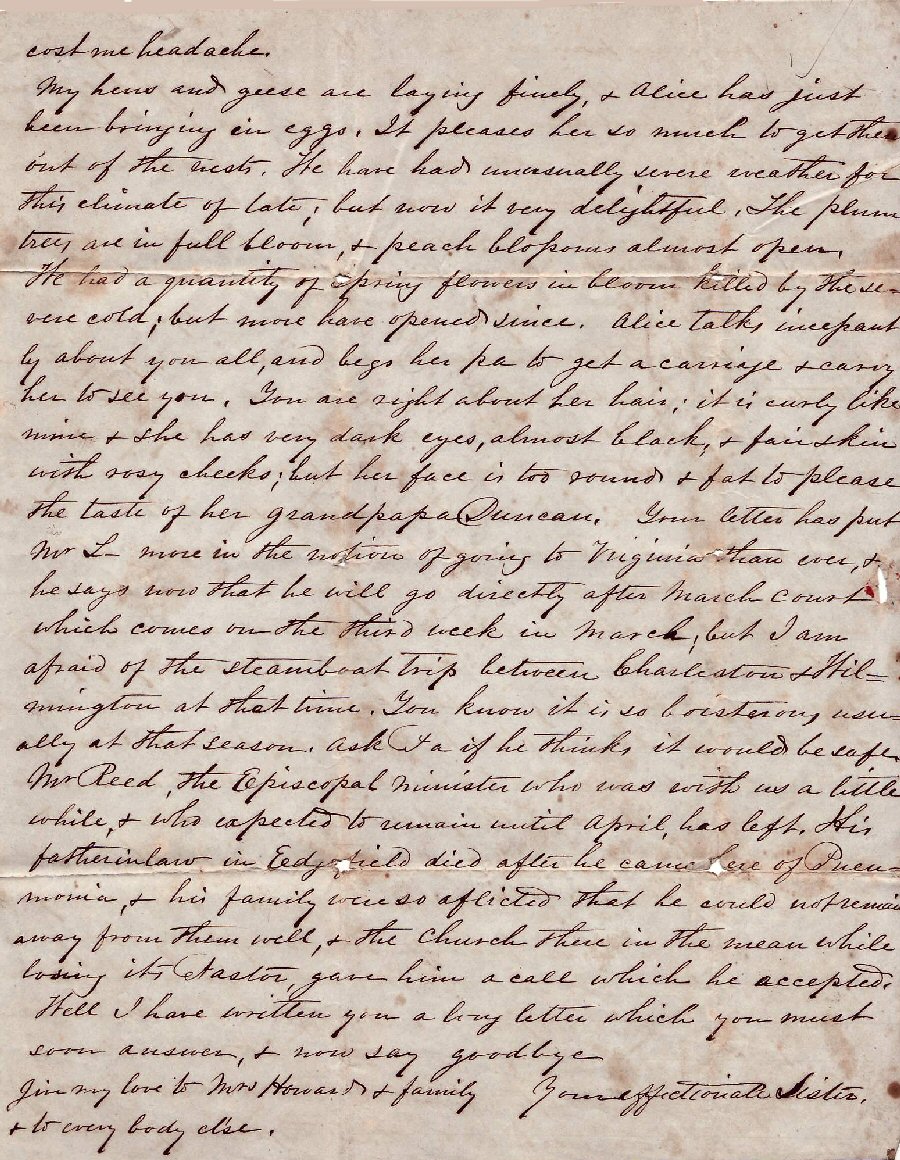 cost me headache.
My hens and geese are laying finely, & Alice has just
been bringing in eggs. It pleases her so much to get them
out of the nests. We have had unusually severe weather for
this climate of late; but now it very delightful. The plum
trees are in full bloom, & peach blossoms almost open.
We had a quantity of Spring flowers in bloom killed by the se-
vere cold; but more have opened since. Alice talks incessant
ly about you all, and begs her pa to get a carriage & carry
her to see you. You are right about her hair; it is curly like
mine & she has very dark eyes, almost black, & fair skin
with rosy cheeks; but her face is too round & fat to please
the taste of her grandpapa Duncan. Your letter has put
Mr L- more in the notion of going to Virginia than ever, &
he says now that he will go directly after March court
which comes on the third week in March, but I am
afraid of the steamboat trip between Charleston & Wil=
mington at that time. You know it is so boisterous usu-
ally at that season. Ask Pa if he thinks it would be safe.
Mr Reed, the Episcopal minister who was with us a little
while, & who expected to remain until April, has left. His
fatherinlaw in Edgefield died after he came here of Pneu-
monia, & his family were so aflicted that he could not remain
away from them well, & the Church there in the mean while
losing its Pastor, gave him a call which he accepted.
Well I have written you a long letter which you must
soon answer, & now say goodbye
Give my love to Mrs Howard & family Your affectionate Sister.
& to every body else.